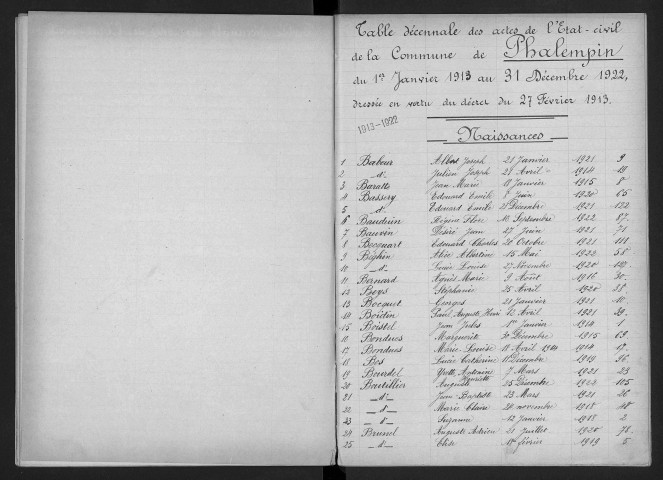 Table décennale des actes de l'Etat-civil
de la Commune de Phalempin
du 1er Janvier 1913 au 31 Décembre 1922,
dressée en vertu du décret du 27 Février 1913.
1913-1922
Naissances
1 Babeur Albert Joseph 21 Janvier 1921 9
2 -d- Julien Joseph 27 Avril 1914 19
3 Baratte Jean Marie 11 Janvier 1915 8
4 Bassery Edouard Emile Juin 1920 65
5 d- Edouard Emile 21 Décembre 1921 122
6 Bauduin Régine Flore 10 Septembre 1922 87
7 Bauvin Désiré Jean 27 Juin 1921 71
8 Becquart Edouard Charles 20 Octobre 1921 111
9 Béghin Alice Albertine 15 Mai 1922 55
10 -d- Louise 27 Novembre 1920
11 Bernard Agnès Marie 9 Août 1916 30
12 Beys Stéphanie 25 Avril 1920 38
13 Bocquet Georges 21 Janvier 1921 10
14 Boidin Paul Auguste Henri 12 Avril 1921 29
15 Boistel Jean Jules 1er Janvier 1914 1
16 Bondues Marguerite 30 Décembre 1915 69
17 Bondues Marie-Louise 11 Avril 1914 17
18 Bos Lucie Catherine 11 Décembre 1919 96
19 Bourdel Yvette 7 Mars 1921 23
20 Boutillier Auguste Henriette 25 Décembre 1922 115
21 -d- Jean Baptiste 23 Mars 1921 26
22 -d- Marie Claire 24 novembre 1918 40
23 -d- Suzanne 12 janvier 1918 2
24 Brunel Auguste Adrien 21 juillet 1920 78
25 -d- Elise 17 février 1919 5